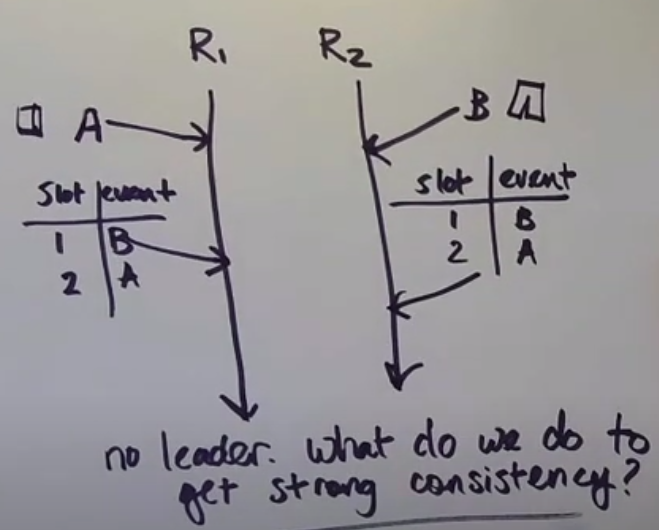 R₁ R₂
A
B
slot event
1 B
2 A
slot event
1 B
2 A
no leader. what do we do to
get strong consistency?